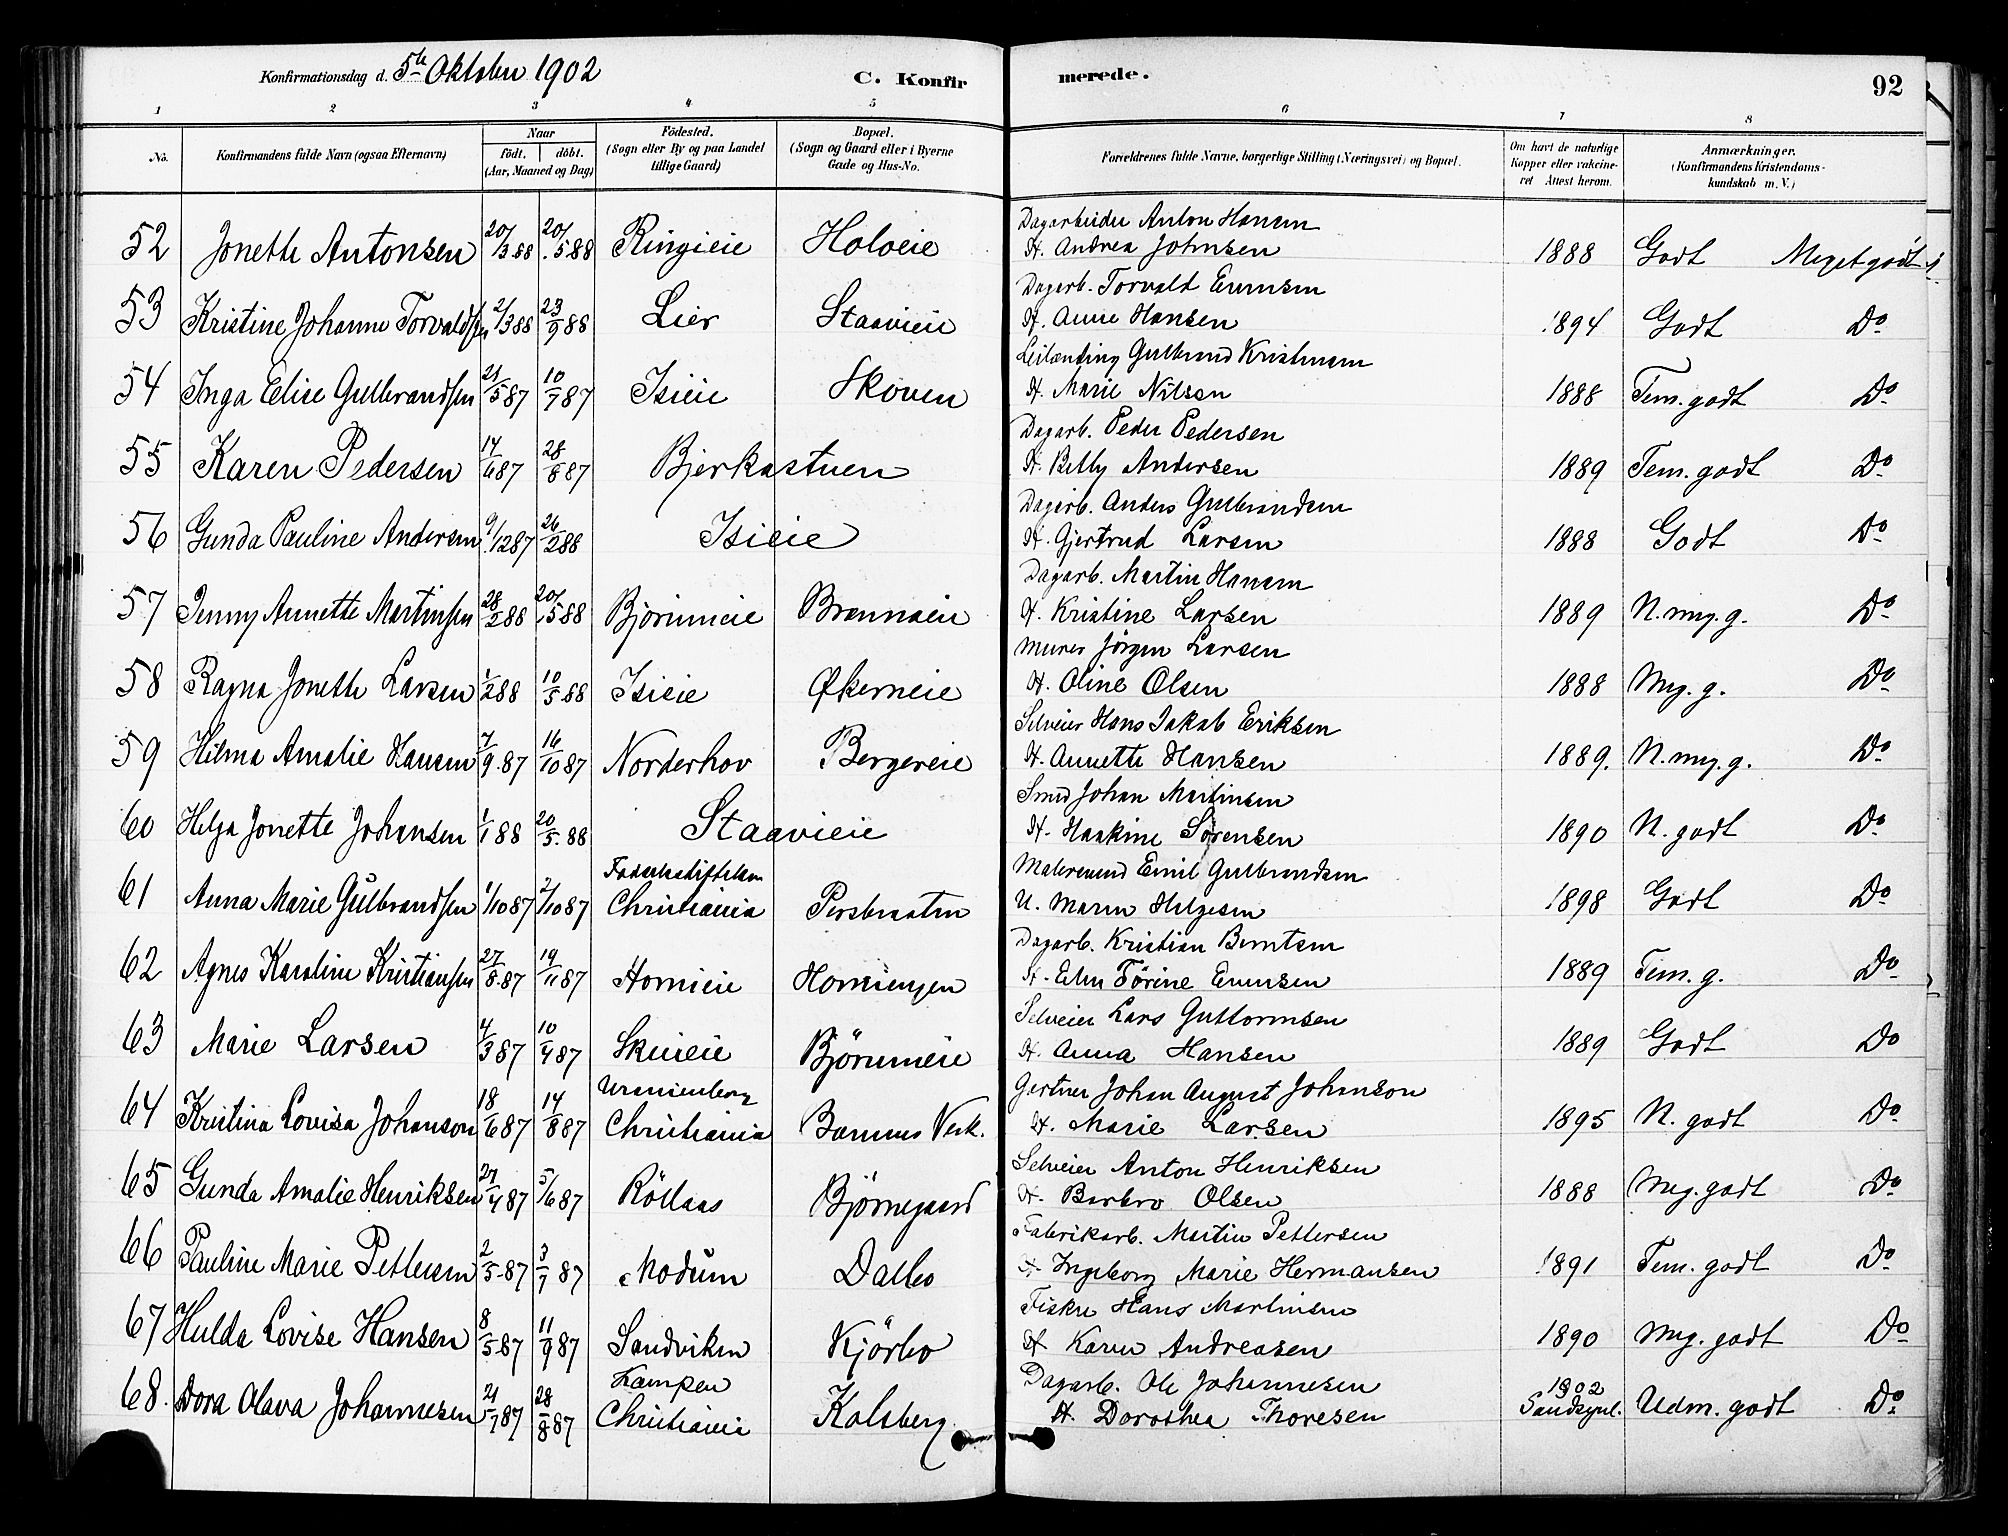 Konfirmationsdag d. 5te Oktober 1902 C. Konfirmerede. 92
1 2 3 4 5 6 7 8
No. Konfirmandens fulde Navn (ogsaa Efternavn) Naar født. døbt. (Aar, Maaned og Dag) Födested. (Sogn eller By og paa Landet tillige Gaard) Bopæl. (Sogn og Gaard eller i Byerne Gade og Hus-No. Forældrenes fulde Navne, borgerlige Stilling (Næringsvei) og Bopæl. Om havt de naturlige Kopper eller vakcineret Attest herom. Anmærkninger. (Konfirmandens Kristendomskundskab m. V.)
Dagarbeider Anton Hansen
52 Jonette Antonsen 20/3 88 20/5 88 Ringieie Holveie H. Andrea Johnsen 1888 Godt Meget godt
Dagarb. Torvald Evensen
53 Kristine Johanne Torvaldsen 2/3 88 23/9 88 Lier Staavieie H. Anne Hansen 1894 Godt Do
Leilænding Gulbrand Kristiansen
54 Inga Elise Gulbrandsen 21/5 87 10/7 87 Isieie Skoven H. Marie Nilsen 1888 Tem. godt Do
Dagarb. Peder Pedersen
55 Karen Pedersen 14/6 87 28/8 87 Bjerkastuen H. Betty Andersen 1889 Tem. godt Do
Dagarb. Anders Gulbrandsen
56 Gunda Pauline Andersen 9/12 87 26/2 88 Isieie H. Gjertrud Larsen 1888 Godt Do
Dagarb. Martin Hansen
57 Jenny Annette Martinsen 28/2 88 20/5 88 Bjørumeie Brennaeie H. Kristine Larsen 1889 N. mg. g. Do
Murer Jörgen Larsen
58 Ragna Jonette Larsen 1/2 88 10/5 88 Isieie Økerneie H. Oline Olsen 1888 Mg. g. Do
Selveier Hans Jakob Eriksen
59 Hilma Amalie Hansen 7/9 87 16/10 87 Norderhov Bergereie H. Annette Hansen 1889. N. mg. g. Do
Smed Johan Martinsen
60 Helga Jonette Johansen 1/1 88 20/5 88 Staavieie H. Haakine Sörensen 1890 N. godt Do
Fødselsstiftelsen Malersvend Emil Gulbrandsen
61 Anna Marie Gulbrandsen 1/10 87 2/10 87 Christiania Persbraaten U. Maren Helgesen 1898 Godt Do
Dagarb. Kristian Berntsen
62 Agnes Karoline Kristiansen 27/8 87 19/11 87 Hornieie Horniengen H. Elen Törine Evensen 1889 Tem. g. Do
Selveier Lars Guttormsen
63 Marie Larsen 4/3 87 10/4 87 Skuieie Bjørumeie H. Anna Hansen 1889 Godt Do
Uranienborg Gartner Johan August Johanson
64 Kristina Lovisa Johanson 18/6 87 14/8 87 Christiania Bærums Verk. H. Marie Larsen 1895 N. godt Do
Selveier Anton Henriksen
65 Gunda Amalie Henriksen 27/4 87 5/6 87 Rötlaas Björnegaard H. Barbro Olsen 1888 Mg. godt Do
Fabrikarb. Martin Pettersen
66 Pauline Marie Pettersen 2/5 87 3/7 87 Modum Dalbo H. Ingeborg Marie Hermansen 1891 Tem. godt Do
Fisker Hans Martinsen
67 Hulda Lovise Hansen 8/5 87 11/9 87 Sandviken Kjörbo H Karen Andreasen 1890 Mg. godt Do
Kampen Dagarb. Ole Johannesen 1902
68. Dora Olava Johannesen 21/7 87 28/8 87 Christiania Kalsberg H. Dorothea Thoresen Sandsynl. Udm. godt Do